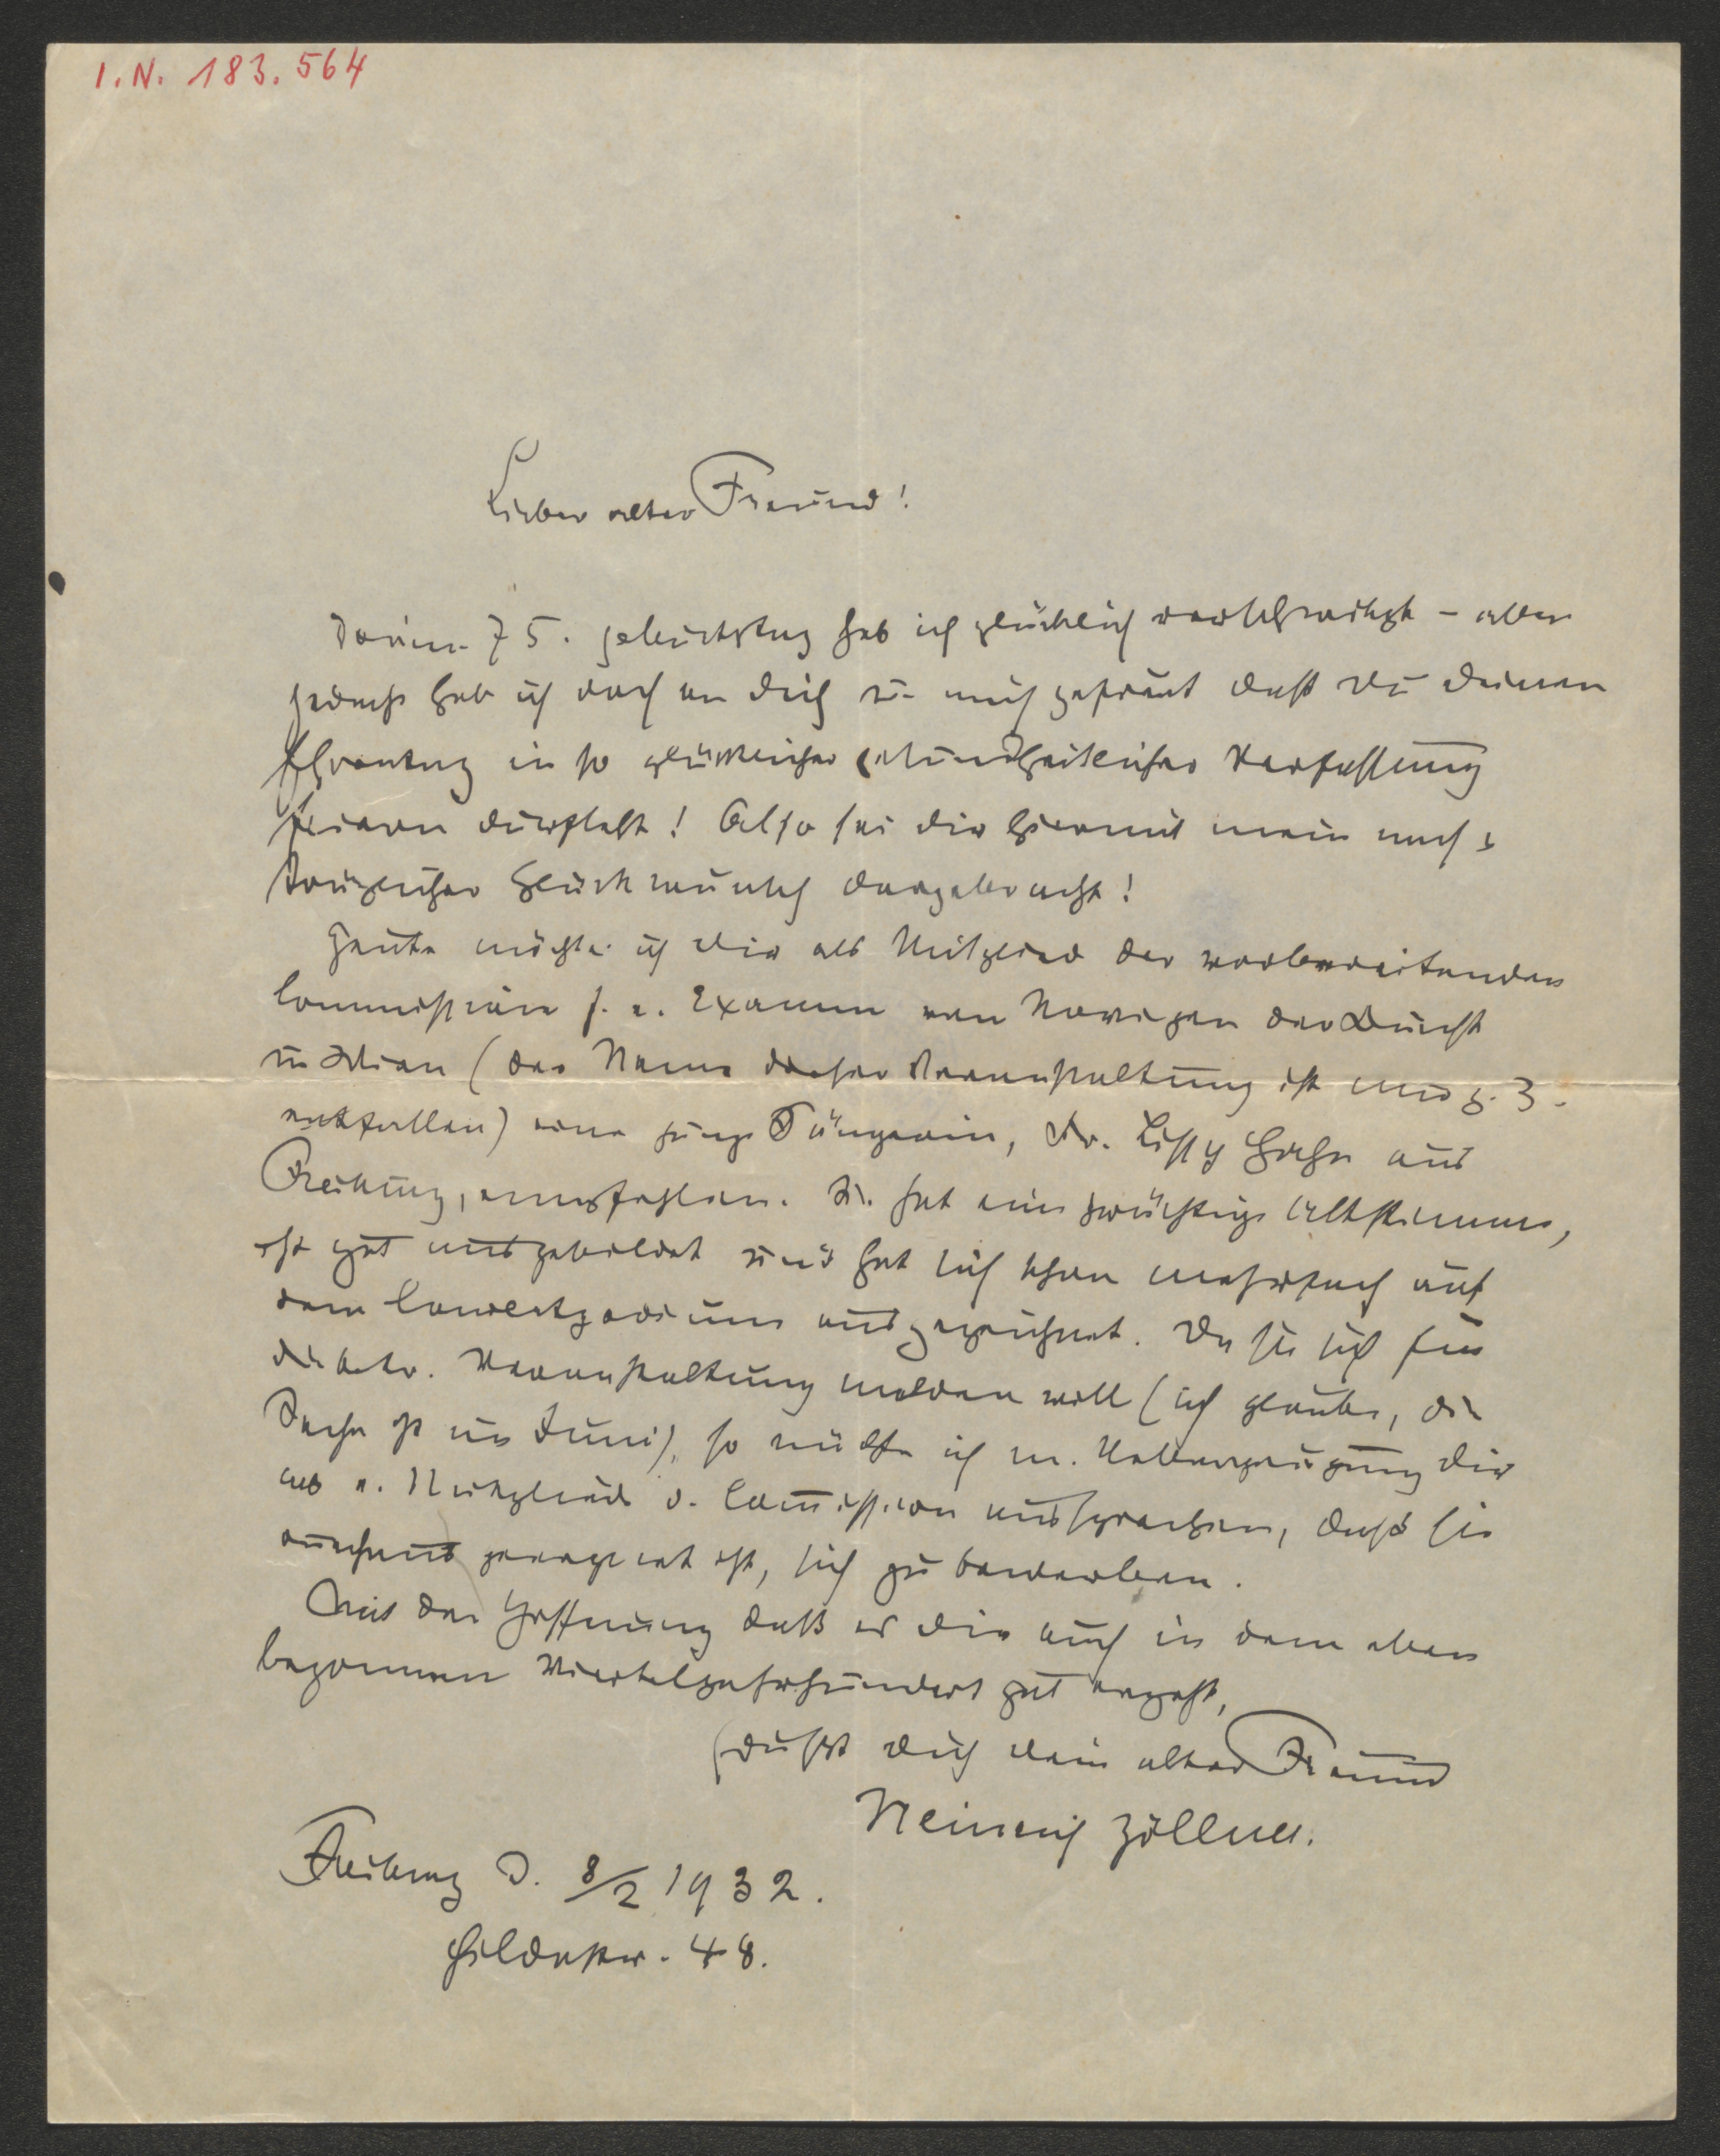 I.N. 183.564
Lieber alter Freund!
Deinen 75. Geburtstag hab ich glücklich verschwitzt – aber
gedacht hab ich doch an Dich u. mich gefreut daß Du Deinen
Ehrentag in so glücklicher gesundheitlicher Verfassung
feiern durftest! Also sei Dir hiermit mein nach-
träglicher Glückwunsch dargebracht!
Heute möchte ich Dir als Mitglied der vorbereitenden
Commission f. e. Examen von der Kunst
in Wien (der Name dieser Veranstaltung ist mir z. Z.
entfallen) eine junge Sängerin, Fr. Lissy Hahn aus
Freiburg, empfehlen. Sie hat eine prächtige Altstimme,
ist gut ausgebildet und hat sich schon mehrfach auf
dem Concertpodium ausgezeichnet. Da sie sich für
die betr. Veranstaltung melden will (ich glaube, die
Sache ist im Juni), so möchte ich m. Ueberzeugung Dir
als e. Mitglied d. Commission aussprechen, daß sie
durchaus geeignet ist, sich zu bewerben.
Mit der Hoffnung daß es Dir auch in dem eben
begonnen Vierteljahrhundert gut ergeht,
grüßt Dich Dein alter Freund
Heinrich Zöllner.
Freiburg d. 8/2 1932.
Hildastr. 48.